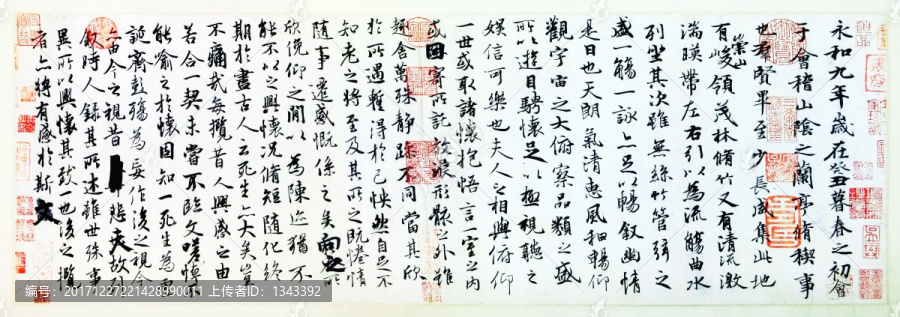 永和九年歲在癸丑暮春之初會
于會稽山陰之蘭亭脩稧事
也羣賢畢至少長咸集此地
有崇山峻領茂林脩竹又有清流激
湍暎帶左右引以為流觴曲水
列坐其次雖無絲竹管弦之
盛一觴一詠亦足以暢叙幽情
是日也天朗氣清惠風和暢仰
觀宇宙之大俯察品類之盛
所以遊目騁懷足以極視聽之
娛信可樂也夫人之相與俯仰
一世或取諸懷抱悟言一室之內
或因寄所託放浪形骸之外雖
趣舍萬殊靜躁不同當其欣
於所遇蹔得於己怏然自足不
知老之將至及其所之既惓情
隨事遷感慨係之矣向之所
欣俛仰之閒以為陳迹猶不
能不以之興懷況脩短隨化終
期於盡古人云死生亦大矣豈
不痛哉每攬昔人興感之由
若合一契未嘗不臨文嗟悼
能喻之於懷固知一死生為
誕齊彭殤為妄作後之視今
亦由今之視昔悲夫故列
叙時人錄其所述雖世殊事
異所以興懷其致一也後之攬
者亦將有感於斯文
编号：20171227221428990011 上传者ID：1343392